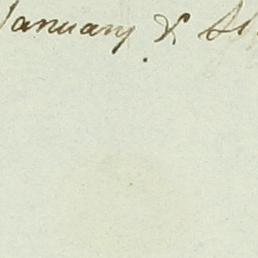 January &